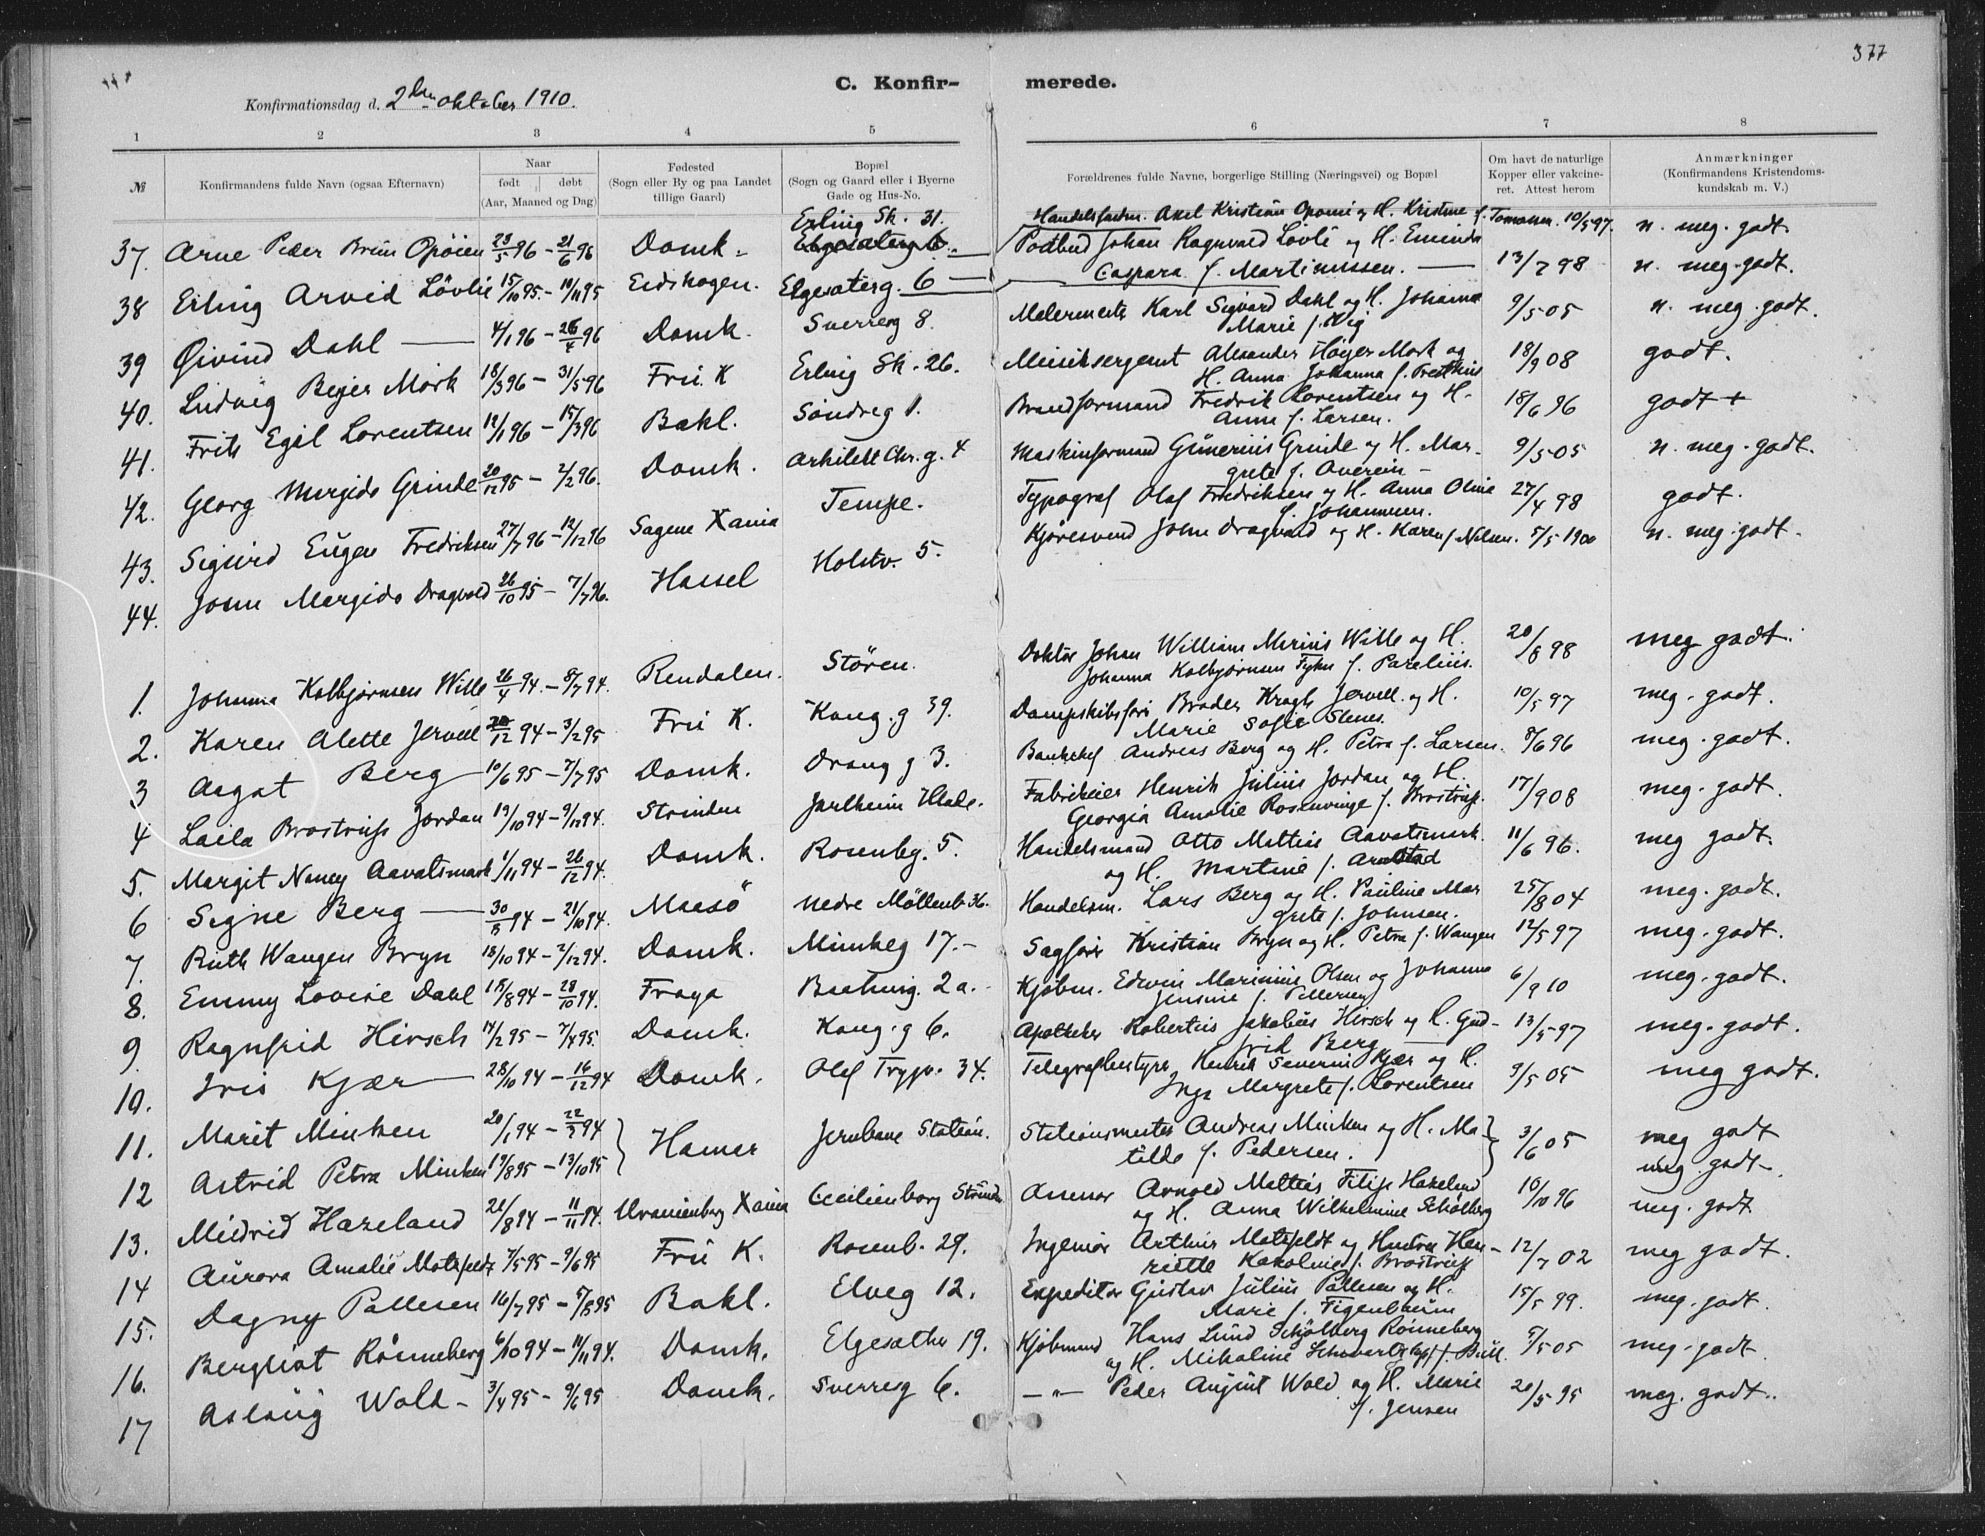 377
C. Konfir-merede.
Konfirmationsdag d. 2den oktober 1910.
1 2 3 4 5 6 7 8
№
Konfirmandens fulde Navn (ogsaa Efternavn)
Naar
født døbt
(Aar, Maaned og Dag)
Fødested
(Sogn eller By og paa Landet
tillige Gaard)
Bopæl
(Sogn og Gaard eller i Byerne
Gade og Hus-No.
Forældrenes fulde Navne, borgerlige Stilling (Næringsvei) og Bopæl
Om havt de naturlige
Kopper eller vakcine-
ret. Attest herom
Anmærkninger
(Konfirmandens Kristendoms-
kundskab m. V.)
Erling Sk. 31. Axel Kristian og H. Kristine f. 10/5 97. n. meg. godt.
37. Arne Peder Bruun Opöien 23/5 96 – 21/6 96 Domk. Elgesæterg. 6. Postbud Johan Ragnvald Lövli og H. Eminda
Caspara f. Martinussen. 13/7 98 n. meg. godt.
38 Erling Arvid Lövlie 15/10 95. – 10/11 95 Eidskogen. Elgesæterg. 6
39 Øivind Dahl 4/1 96 – 26/4 96 Domk. Sverresg 8. Malermester Karl Sigvard Dahl og H. Johanna
Marie f. Wig 9/5 05 n. meg. godt.
40. Ludvig Beyer Mörk 18/3 96 – 31/5 96 Frue K Erling Sk. 26. Musiksergeant Alexander Höyer Mørk og
H. Anna Johanna f. 18/9 08 godt.
41. Frits Egil Lorentsen 12/1 96 – 15/3 96 Bakl. Söndreg 1. Brandformand Fredrik Lorentsen og H.
Anna f. Larsen. 18/6 96 godt +
42. Georg Margido Grinde 20/12 95 – 2/2 96. Domk. Arkitekt Chr. g. 4 Maskinformand Gunerius Grinde og H. Mar-
grete f. Averein – 9/5 05 n. meg. godt.
43. Sigurd Eugen Fredriksen 27/7 96 – 12/12 96 Sagene Xania Tempe. Typograf Olaf Fredriksen og H. Anna Olina
f. Johannesen. 27/4 98 godt.
44. John Margido Dragvold 26/10 95 – 7/7 96. Hassel Holstv. 5. Kjøresvend John Dragvold og H. Karen f. Nilsen. 5/5 1900 n. meg. godt.
1. Johanna Kolbjørnsen Wille 26/4 94. – 8/7 94. Rendalen. Stören. Doktor Johan William Marius Wille og H.
Johanna Kolbjørnsen f. Parelius. 20/8 98 meg godt.
2. Karen Alette Jervell 20/12 94 – 3/2 95 Frue K. Kong. g 39. Dampskibsför Broder Kragh Jervell og H.
Marie Sofie Stenes. 10/5 97 meg. godt.
3 Aagot Berg 10/6 95 – 7/7 95 Domk. Drong g 3. Andreas Berg og H. Petra f. Larsen. 8/6 96 meg. godt.
4 Laila Brostrup Jordan 19/10 94 – 9/12 94. Strinden Jarlheim Hlade. Fabrikeier Henrik Julius Jordan og H.
Georgia Amalie Rosenvinge f. Brostrup. 17/9 08 meg. godt.
5. Margit Nancy Aavatsmark 1/11 94 – 26/12 94. Domk. Rosenbg. 5. Handelsmand Otto Mattias Aavatsmark
og H. Martine f. 11/6 96. meg godt.
6 Signe Berg 30/8 94 – 21/10 94. Maasö Nedre Möllenb 36. Handelsm. Lars Berg og H. Pauline Mar
grete f. Johnsen. 25/8 04 meg. godt.
7. Ruth Wangen Bryn 18/10 94 – 2/12 94. Domk. Munkeg 17. – Sagförer Kristian Bryn og H. Petra f. Wangen 12/5 97 meg. godt.
8. Emmy Lovise Dahl 15/8 94 – 28/10 94. Froya Bakkeg. 2 a. Kjøbm. Edvin Marinius Olsen og Johanna
Jensine f. 6/9 10 meg. godt.
9 Ragnfrid Hirsch 14/2 95 – 7/4 95. Domk. Kong. g 6. Apotheker Robertus Jakobus Hirsch og H. Gud-
frid Berg 13/5 97 meg. godt.
10. Iris Kjær 28/10 94 – 16/12 94 Domk. Olaf Trygv. 34. Telegrafbestyrer Henrik Severin Kjær og H.
Inga Margrete f. Lorentsen 3/5 05 meg godt.
11. Marit Minken 20/1 94 – 22/3 94 Hamar Jernbane Station. Stationsmester Andreas Minken og H. Ma
tilde f. Pedersen. 3/6 05 meg godt
12 Astrid Petra Minken 19/8 95 – 13/10 95 meg. godt –
13. Mildrid Hazeland 21/8 94 – 11/11 94. Uranienborg Xania Cecilienborg Strinden Arnold Mattias Filip Hazeland
og H. Anna Wilhelmine Schølberg 10/10 96 meg. godt
14 Aurora Amalie Motzfeldt 7/5 95 – 9/6 95 Frue K. Rosenb. 29. Ingeniør Arthur Motzfeldt og Hustru Hen-
riette f. Brostrup 12/7 02 meg godt.
15. Dagny Pallesen 16/7 95 – 5/8 95 Bakl. Elveg 12. Expeditør Gustav Julius Pallesen og H.
Marie f. Figenbaum 15/5 99. meg. godt.
16. Bergliot Rönneberg 6/10 94 – 11/11 94. Domk. Elgesæther 19. Kjöbmand Hans Lund Schjölberg Rönneberg
og H. Mikaline f. Bull. 5/5 05 meg. godt.
17 Aslaug Wold – 3/4 95 – 9/6 95 Domk. Sverresg 6. — " — Peder August Wold og H. Marie
f. Jensen 20/5 95 meg. godt.